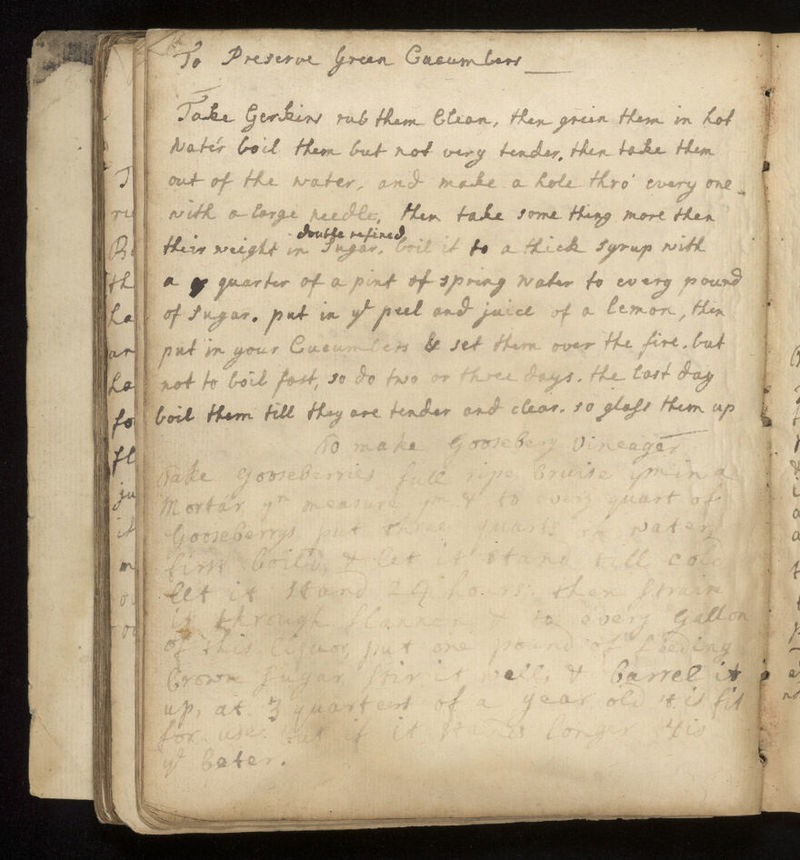 To Preserve Green Cucumbers
Take Gerkins rub them Clean, then green them in hot
Water boil them but not very tender, then take them
out of the water, and make a hole thro' every one
with a large needle, then take some thing more then
double refined
their weight in Sugar, boil it to a thick syrup with
a quarter of a pint of spring water to every pound
of Sugar. put in yᵉ peel and juice of a lemon, then
put in your Cucumbers & set them over the fire. but
not to boil fast, so do two or three days. the last day
boil them till they are tender and clear. so glass them up
To make Goosebery Vineager
Take Gooseberries full ripe Bruise ym in a
Mortar yn measure ym & to every quart of
Gooseberrys put three quarts of water
first boil'd & let it stand till cold
let it stand 24 hours. then strain
it through flannen & to every Gallon
of this Liquor, put one pound of
Brown Sugar, stir it well, & barrel it
up, at 3 quarters of a year old t is fit
for use. but if it stands longer tis
yᵉ beter.
T
ru
th
ha
ar
ha
fo
fl
ju
it
m